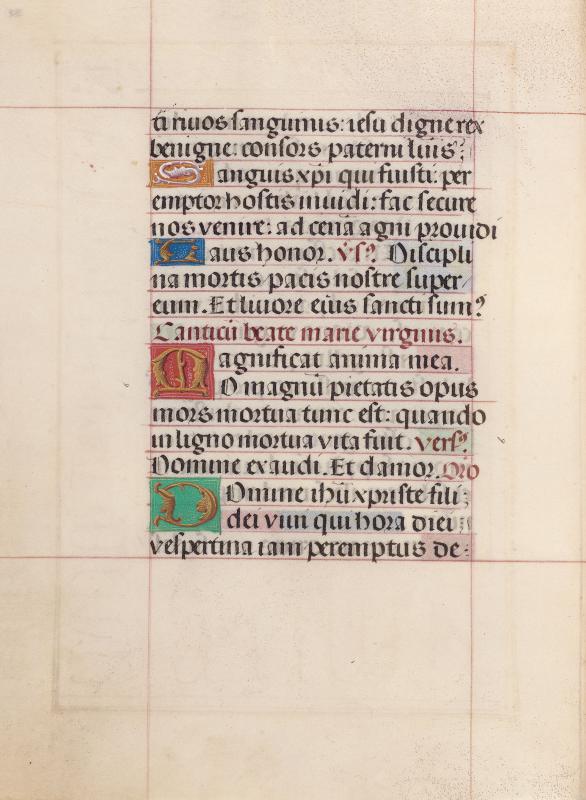 ti rivos sanguinis: iesu digne rex
benigne: consors paterni luis:
Sanguis xpi qui fuisti: per
emptor hostis invidi: fac secure
nos venire: ad cenā agni providi
Laus honor. v̄s? Discipli
na mortis pacis nostre super/
eum. Et livore eius sancti sum?
Canticū beate marie virginis.
Magnificat anima mea.
O magnū pietatis opus
mors mortua tunc est: quando
in ligno mortua vita fuit. vers?
Domine exaudi. Et clamor. Oro
Domine ihū xpriste fili:
dei vivi qui hora diei
vespertina iam peremptus de: